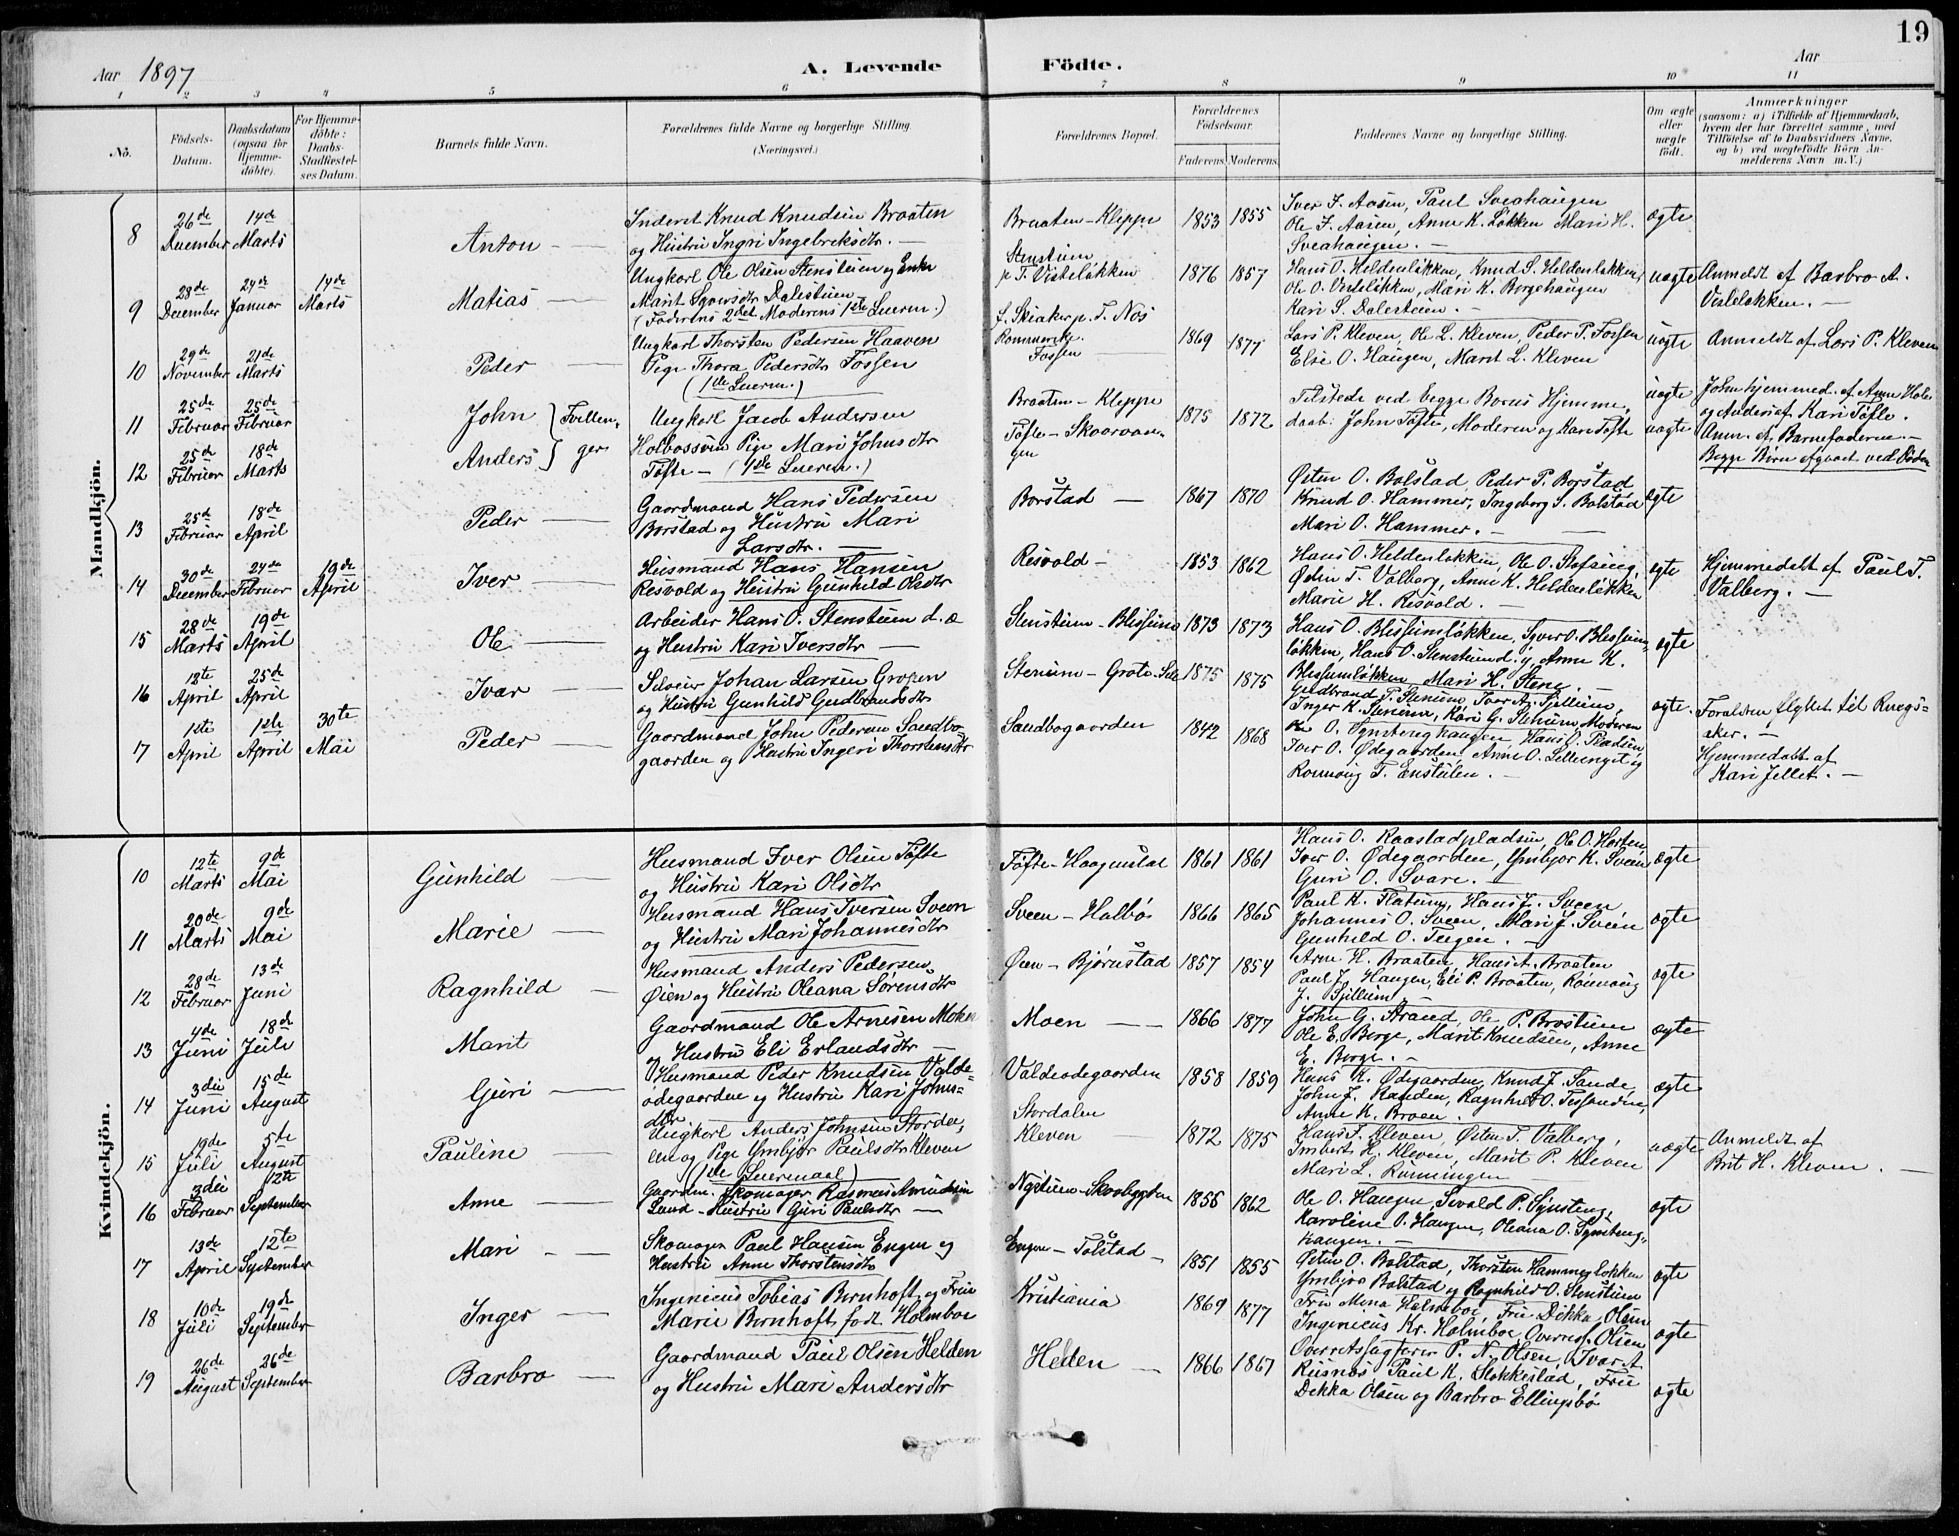 19
Aar 1897
A. Levende Födte.
Aar
1 2 3 4 5 6 7 8 9 10 11
No. Födsels-Datum. Daabsdatum (ogsaa for Hjemmedöbte). For Hjemmedöbte: Daabs-Stadfæstelses Datum. Barnets fulde Navn. Forældrenes fulde Navne og borgerlige Stilling (Næringsvei.) Forældrenes Bopæl. Forældrenes Födselsaar. Faderens. Moderens. Faddernes Navne og borgerlige Stilling. Om ægte eller uægte födt. Anmærkninger (saasom: a) i Tilfælde af Hjemmedaab, hvem der har forrettet samme, med Tilföielse af to Daabsvidners Navne, og b) ved uægtefödte Börn Anmelderens Navn m. V.)
Mandkjön.
8 26de December 14de Marts Anton Inderst Knud Knudsen Braaten og Hustru Ingri Ingebriktsdtr. Braaten - Kleppe 1853 1855 Iver F. Aasen, Paul Sveahaugen Ole F. Aasen, Anne K. Løkken Mari H. Sveahaugen. ægte
9 28de December 24de Januar 14de Marts Matias Ungkarl Ole Olsen Stenstuen og Enke Marit Syversdtr Dalestuen (Faderens 2det Moderens 1ste Leierm.) Stenstuen p. T. Visteløkken f. Skiaker p. T. Nos 1876 1857 Hans O. Heldenløkken, Knud S. Heldenløkken, Ole O. Visteløkken, Mari K. Borgehaugen Kari S. Dalestuen. uægte Anmeldt af Barbro A. Visteløkken.
10 29de November 21de Marts Peder Ungkarl Thorsten Pedersen Haaven Pige Thora Pedersdtr Fossen (1ste Leierm.) Fossen 1869 1877 Lars P. Kleven, Ole L. Kleven, Peder P. Fossen Else O. Haugen, Marit L. Kleven uægte Anmeldt af Lars P. Kleven
11 25de Februar 25de Februar John Tvillinger Ungkarl Jacob Andersen Braaten - Kleppe 1875 1872 Tilstede ved begge Børns Hjemmedaab: John Tøfte, Moderen og Kari Tøfte uægte John hjemmed. af Anne
12 25de Februar 18de Marts Anders Pige Mari Johnsdtr Tøfte - (1ste Leierm.) Tøfte - Skaarvangen uægte og Anders af Kari Tøfte. Anm. af Barnefaderen. Begge Børn
13 25de Februar 18de April Peder Gaardmand Hans Pedersen Borstad og Hustru Mari Larsdtr. Borstad 1867 1870 Østen O. Bolstad, Peder P. Borstad Knud O. Hammer, Ingeborg S. Bolstad Mari O. Hammer. ægte
14 30de December 24de Februar 19de April Iver Husmand Hans Hansen Resvold og Hustru Gunhild Olsdtr Resvold 1853 1862 Hans O. Heldenløkken, Ole O. Stofsing, Østen T. Valberg, Anne K. Heldenløkken Marie H. Resvold. ægte Hjemmedøbt af Paul T. Valberg.
15 28de Marts 19de April Ole Arbeider Hans O. Stenstuen d. æ og Hustru Kari Iversdtr Stenstuen - Blessum 1873 1873 Hans O. Blessumløkken, Syver O. Blessumløkken, Hans O. Stenstuen d. y, Anne K. Blessumløkken Mari H. Stene. ægte
16 13te April 25de April Ivar Johan Larsen Gropen og Hustru Gunhild Gudbrandsdtr Stenum - Grote Sell 1875 1875 Gudbrand T. Stenum, Ivar A. Sjellum, Inger K. Stenum, Kari G. Stenum Moderen ægte. Forældrene flyttet til Ringsaker.
17 1ste April 1ste April 30te Mai Peder Gaardmand John Pedersen Sandbogaarden og Hustru Ingeri Thorstensdtr Sandbogaarden 1842 1868 O. Synstenghaugen Hans O. Pladsen, Iver O. Ødegaarden, Anne O. Lillengst og Rønnaug T. Enstulen. Hjemmedøbt af Kari Jellet.
Kvindekjön.
10 12te Marts 9de Mai Gunhild Husmand Iver Olsen Tøfte og Hustru Kari Olsdtr Tøfte - Haagenstad 1861 1861 Hans O. Raastadpladsen, Ole O. Horten, Iver O. Ødegaarden, Ymbjør K. Sveen Guri O. Svare. ægte
11 20de Marts 9de Mai Marie Husmand Hans Iversen Sveen og Hustru Mari Johannesdtr Sveen - Halbø 1866 1865 Paul K. Flatum, Hans J. Sveen Johannes O. Sveen, Mari J. Sveen Gunhild O. Teigen. ægte
12 28de Februar 13de Juni Ragnhild Husmand Anders Pedersen Øien og Hustru Oleana Sørensdtr Øien - Bjørnstad 1857 1854 Arne H. Braaten, Hans A. Braaten Paul J. Haugen, Eli P. Braaten, Rønnaug J. Sjellum ægte
13 4de Juni 18de Juli Marit Gaardmand Ole Arnesen Moen og Hustru Eli Erlandsdtr Moen 1866 1877 John G. Strand, Ole P. Brostuen Ole E. Berge, Marit Knudsen, Anne E. Berge. ægte
14 3die Juni 15de August Guri Husmand Peder Knudsen Valdeødegaarden og Hustru Kari Johnsdtr Valdeødegaarden 1858 1859 Hans K. Ødegaarden, Knud J. Sande, John J. Randen, Ragnhild O. Tessanden, Anne K. Broen. ægte
15 19de Juli 5te August Pauline Ungkarl Anders Johnsen Stordalen og Pige Ymbjør Paulsdtr Kleven (1ste Leiermaal) Stordalen Kleven 1872 1875 Hans T. Kleven, Østen T. Valberg, Imbert H. Kleven, Marit P. Kleven Mari L. Rønningen uægte Anmeldt af Brit H. Kleven.
16 3die Februar 12te September Anne Gaardm. Skomager Rasmus Amundsen Lund - Hustru Guri Paulsdtr Nystuen - Skovbygden 1855 1862 Ole O. Haugen, Sevald P. Synsteng, Karoline O. Haugen, Oleana O. Synstenghaugen. ægte
17 13de April 12te September Mari Skomager Paul Hansen Engen og Hustru Anne Thorstensdtr Engen - Tolstad 1851 1855 Østen O. Bolstad, Thorsten Hammerløkken Ymbjør Bolstad og Ragnhild O. Stenstuen ægte
18 10de Juli 19de September Inger Ingeniør Tobias Bernhoft og Frue Marie Bernhoft, født Holmboe Kristiania 1869 1877 Frue Mina Holmboe, Frue Dikka Olsen Ingeniør Kr. Holmboe, Overretss. Olsen ægte
19 26de August 26de September Barbro Gaardmand Paul Olsen Helden og Hustru Mari Andersdtr Helden 1866 1867 Overretssagfører P. N. Olsen, Ivar A Riisnæs Paul K. Slokkestad, Frue Dikka Olsen og Barbro Ellingsbø ægte